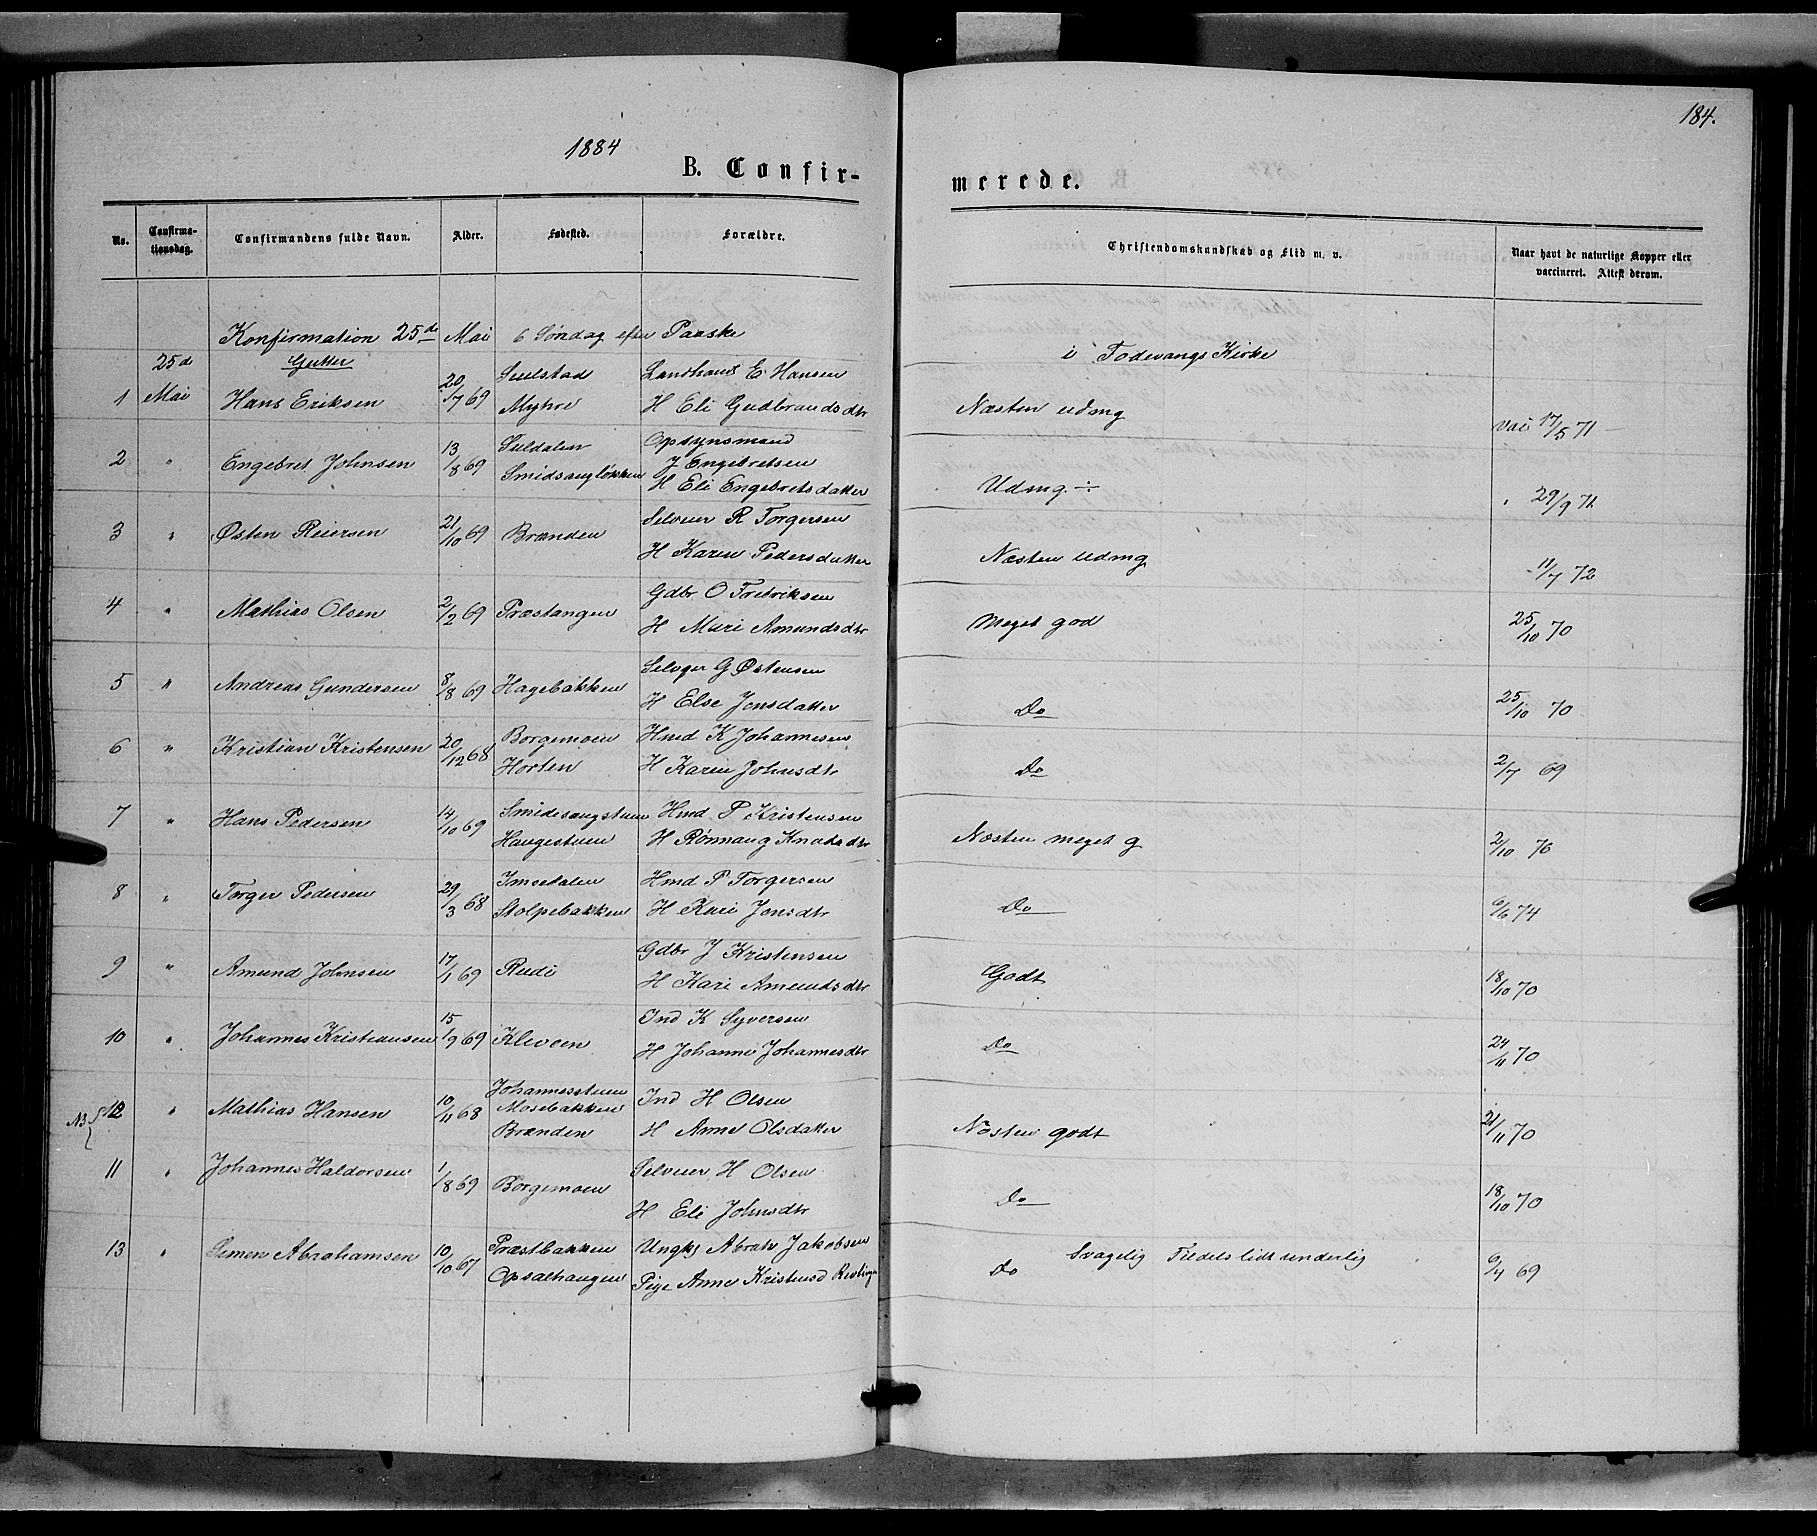 184.
1884
B. Confir-
merede.
No.
Confirma-
tionsdag.
Confirmandens fulde Navn.
Alder.
Fødested.
Forældre.
Christendomskundskab og Flid m. v.
Naar havt de naturlige Kopper eller
vaccineret. Attest derom.
Konfirmation 25de Mai 6 Søndag efter Paaske
i Fodevangs Kirke
25d Gutter
1 Mai Hans Eriksen 20/7 69 Myhre Landhand E. Hansen
H Eli Gudbrandsdtr Næsten udmg vac 17/5 71
2 " Engebret Johnsen 13/8 69 Smidsaugløkken Opsynsmand
J Engebretsen
H Eli Engebretsdatter Udmg ÷ " 29/9 71
3 " Østen Reiersen 21/10 69 Brænden Selveier R Torgersen
H Karen Pedersdatter Næsten udmg 11/7 72
4 " Mathias Olsen 2/2 69 Præstangen Gdbr O Fredriksen
H Mari Amundsdtr Meget god 25/10 70
5 " Andreas Gundersen 8/8 69 Hagebakken Selvger G Østensen
H Else Jonsdatter Do 25/10 70
6 " Kristian Kristensen 20/12 68 Borgemoen Hmd K Johannesen
Horten H Karen Johnsdtr Do 2/7 69
7 " Hans Pedersen 14/10 69 Smidesaugstuen Hmd P Kristensen
Haugestuen H Rønnaug Knudsdtr Næsten meget g 2/10 76
8 " Torger Pedersen 29/3 68 Imsedalen Hmd P Torgersen
Stolpebakken H Kari Jonsdtr Do 6/6 74
9 " Amund Johnsen 17/1 69 Rudi Gdbr J Kristensen
H Kari Amundsdtr Godt 18/10 70
10 " Johannes Kristiansen 15/9 69 Klevoen Ind K Syversen
H Johanne Johannesdtr Do 24/11 70
NB 12 " Mathias Hansen 10/11 68 Johannesstuen
Mosebakken Ind H Olsen
Brænden H Anne Olsdatter Næsten godt 21/11 70
11 " Johannes Haldorsen 1/8 69 Borgemoen Selveier H Olsen
H Eli Johnsdtr Do 18/10 70
13 " Simen Abrahamsen 10/10 67 Præstbakken Ungkj Abrah Jakobsen
Opsalhaugen Pige Anne Kristensd Do Svagelig Tildels lidt underlig 6/4 69